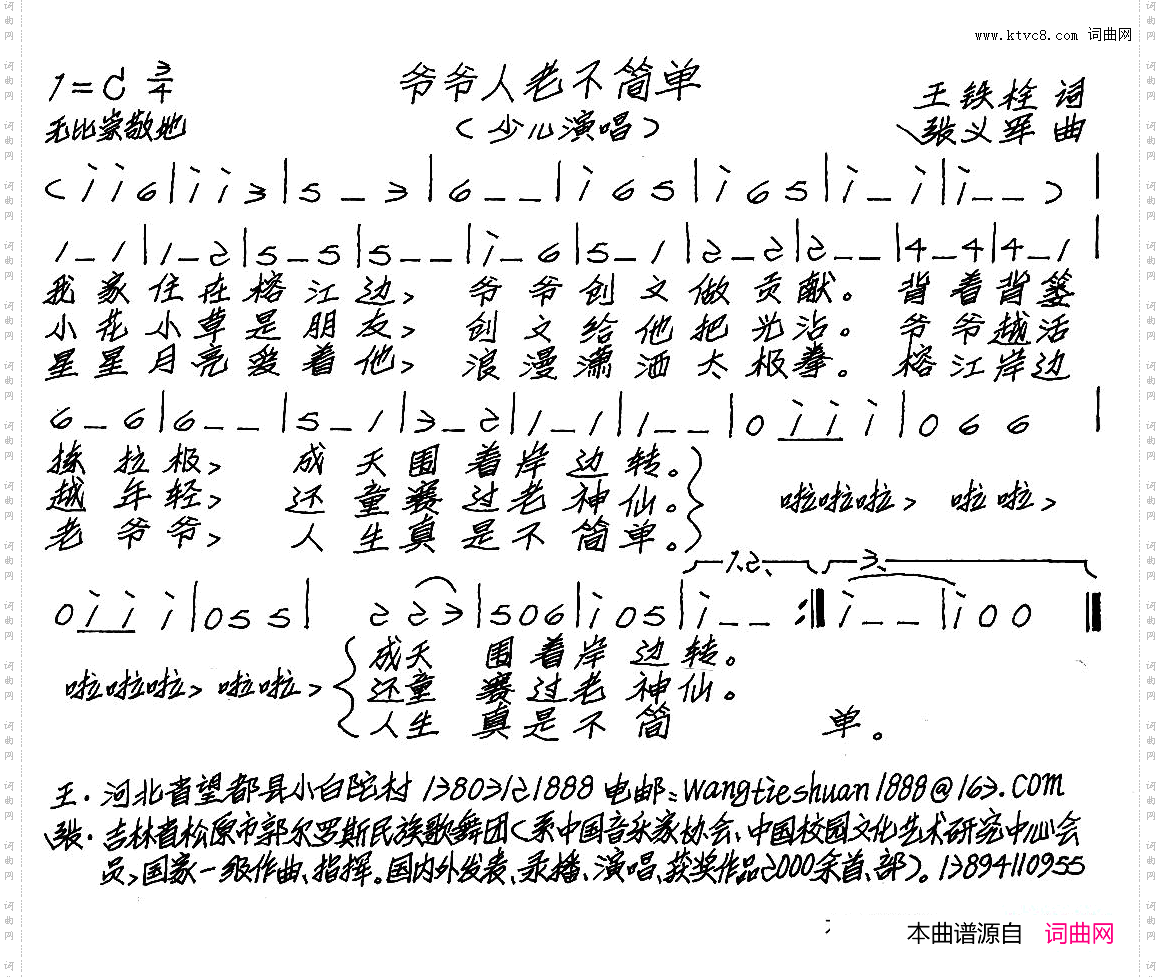 www.ktvc8.com 词曲网
1=C 3/4
爷爷人老不简单
王铁栓 词
无比崇敬地
(少儿演唱)
张义军 曲
(i i 6|i i 3|5 – 3|6 – –|i 6 5|i 6 5|i – i|i – – )|
1 – 1|1 – 2|5 – 5|5 – –|i – 6|5 – 1|2 – 2|2 – –|4 – 4|4 – 1|
我家住在榕江边, 爷爷创文做贡献。 背着背篓
小花小草是朋友, 创文给他把光沾。 爷爷越活
星星月亮爱着他, 浪漫潇洒太极拳。 榕江岸边
6 – 6|6 – –|5 – 1|3 – 2|1 – 1|1 – –|0 i i i|0 6 6|
拣垃极, 成天围着岸边转。
越年轻, 还童赛过老神仙。 啦啦啦, 啦啦,
老爷爷, 人生真是不简单。
1、2、 3、
0 i i i|0 5 5|2 2 3|5 0 6|i 0 5|i – – :‖i – –|i 0 0‖
成天 围着岸边转。
啦啦啦, 啦啦, 还童 赛过老神仙。
人生 真是不简 单。
王·河北省望都县小白陀村 13803121888 电邮:wangtieshuan1888@163.com
张·吉林省松原市郭尔罗斯民族歌舞团(系中国音乐家协会、中国校园文化艺术研究中心会
员,国家一级作曲、指挥。国内外发表、录播、演唱、获奖作品2000余首、部)。13894110955
本曲谱源自 词曲网